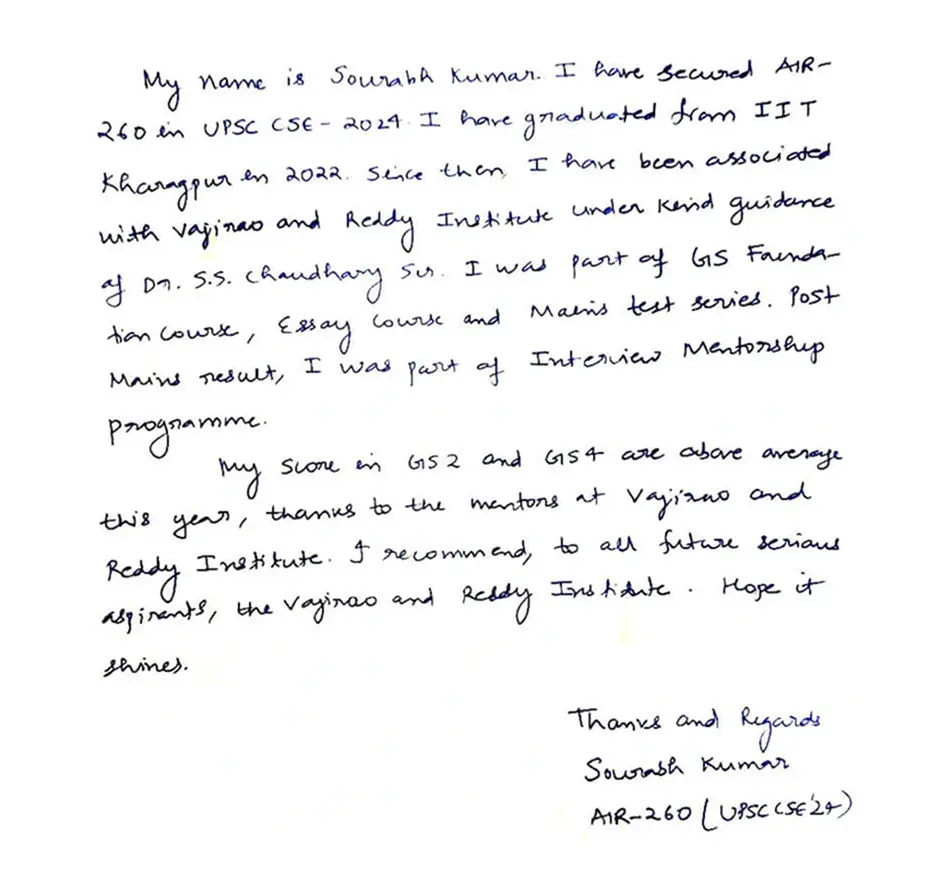 My name is Sourabh Kumar. I have secured AIR-
260 in UPSC CSE - 2024. I have graduated from IIT
Kharagpur in 2022. Since then, I have been associated
with Vajirao and Reddy Institute under kind guidance
of Dr. S.S. Chaudhary Sir. I was part of GS Founda-
tion Course, Essay Course and Mains test series. Post
Mains result, I was part of Interview Mentorship
programme.
My score in GS2 and GS4 are above average
this year, thanks to the mentors at Vajirao and
Reddy Institute. I recommend, to all future serious
aspirants, the Vajirao and Reddy Institute. Hope it
shines.
Thanks and Regards
Sourabh Kumar
AIR-260 (UPSC CSE'24)